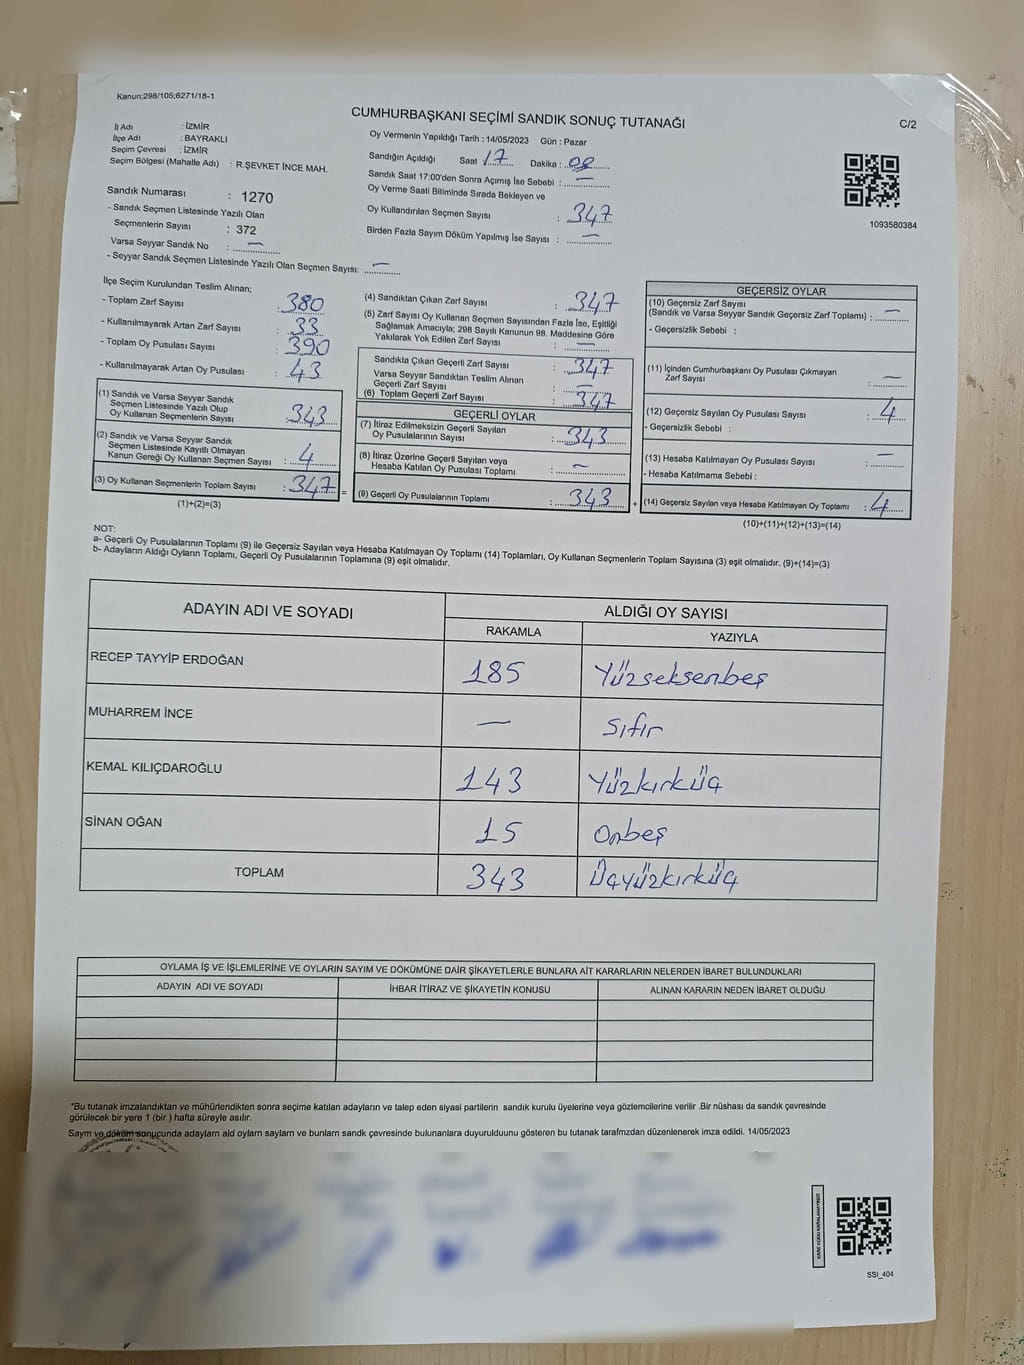 Kanun;298/105;6271/18-1
CUMHURBAŞKANI SEÇİMİ SANDIK SONUÇ TUTANAĞI
C/2
İl Adı : İZMİR
İlçe Adı : BAYRAKLI
Seçim Çevresi : İZMİR
Seçim Bölgesi (Mahalle Adı) : R.ŞEVKET İNCE MAH.
Sandık Numarası : 1270
- Sandık Seçmen Listesinde Yazılı Olan
Seçmenlerin Sayısı : 372
Varsa Seyyar Sandık No : —
- Seyyar Sandık Seçmen Listesinde Yazılı Olan Seçmen Sayısı: —
Oy Vermenin Yapıldığı Tarih : 14/05/2023 Gün : Pazar
Sandığın Açıldığı Saat 17 Dakika :
Sandık Saat 17:00'den Sonra Açımış İse Sebebi : —
Oy Verme Saati Bitiminde Sırada Bekleyen ve
Oy Kullandırılan Seçmen Sayısı : 347
Birden Fazla Sayım Döküm Yapılmış İse Sayısı : —
1093580384
İlçe Seçim Kurulundan Teslim Alınan;
- Toplam Zarf Sayısı : 380
- Kullanılmayarak Artan Zarf Sayısı : 33
- Toplam Oy Pusulası Sayısı : 390
- Kullanılmayarak Artan Oy Pusulası : 43
(1) Sandık ve Varsa Seyyar Sandık
Seçmen Listesinde Yazılı Olup
Oy Kullanan Seçmenlerin Sayısı : 343
(2) Sandık ve Varsa Seyyar Sandık
Seçmen Listesinde Kayıtlı Olmayan
Kanun Gereği Oy Kullanan Seçmen Sayısı : 4
(3) Oy Kullanan Seçmenlerin Toplam Sayısı : 347 =
(1)+(2)=(3)
(4) Sandıktan Çıkan Zarf Sayısı : 347
(5) Zarf Sayısı Oy Kullanan Seçmen Sayısından Fazla İse, Eşitliği
Sağlamak Amacıyla; 298 Sayılı Kanunun 98. Maddesine Göre
Yakılarak Yok Edilen Zarf Sayısı : —
Sandıkta Çıkan Geçerli Zarf Sayısı : 347
Varsa Seyyar Sandıktan Teslim Alınan
Geçerli Zarf Sayısı : —
(6) Toplam Geçerli Zarf Sayısı : 347
GEÇERLİ OYLAR
(7) İtiraz Edilmeksizin Geçerli Sayılan
Oy Pusulalarının Sayısı : 343
(8) İtiraz Üzerine Geçerli Sayılan veya
Hesaba Katılan Oy Pusulası Toplamı : —
(9) Geçerli Oy Pusulalarının Toplamı : 343 +
GEÇERSİZ OYLAR
(10) Geçersiz Zarf Sayısı
(Sandık ve Varsa Seyyar Sandık Geçersiz Zarf Toplamı) : —
- Geçersizlik Sebebi :
(11) İçinden Cumhurbaşkanı Oy Pusulası Çıkmayan
Zarf Sayısı : —
(12) Geçersiz Sayılan Oy Pusulası Sayısı : 4
- Geçersizlik Sebebi :
(13) Hesaba Katılmayan Oy Pusulası Sayısı : —
- Hesaba Katılmama Sebebi :
(14) Geçersiz Sayılan veya Hesaba Katılmayan Oy Toplamı : 4
(10)+(11)+(12)+(13)=(14)
NOT:
a- Geçerli Oy Pusulalarının Toplamı (9) ile Geçersiz Sayılan veya Hesaba Katılmayan Oy Toplamı (14) Toplamları, Oy Kullanan Seçmenlerin Toplam Sayısına (3) eşit olmalıdır. (9)+(14)=(3)
b- Adayların Aldığı Oyların Toplamı, Geçerli Oy Pusulalarının Toplamına (9) eşit olmalıdır.
ADAYIN ADI VE SOYADI ALDIĞI OY SAYISI
RAKAMLA YAZIYLA
RECEP TAYYİP ERDOĞAN 185 Yüzseksenbeş
MUHARREM İNCE — Sıfır
KEMAL KILIÇDAROĞLU 143 Yüzkırküç
SİNAN OĞAN 15 Onbeş
TOPLAM 343 Üçyüzkırküç
OYLAMA İŞ VE İŞLEMLERİNE VE OYLARIN SAYIM VE DÖKÜMÜNE DAİR ŞİKAYETLERLE BUNLARA AİT KARARLARIN NELERDEN İBARET BULUNDUKLARI
ADAYIN ADI VE SOYADI İHBAR İTİRAZ VE ŞİKAYETİN KONUSU ALINAN KARARIN NEDEN İBARET OLDUĞU
*Bu tutanak imzalandıktan ve mühürlendikten sonra seçime katılan adayların ve talep eden siyasi partilerin sandık kurulu üyelerine veya gözlemcilerine verilir .Bir nüshası da sandık çevresinde
görülecek bir yere 1 (bir ) hafta süreyle asılır.
Saym ve döküm sonucunda adaylarn ald oylarn saylarn ve bunlarn sandk çevresinde bulunanlara duyurulduunu gösteren bu tutanak tarafmzdan düzenlenerek imza edildi. 14/05/2023
KARE KODU KARALAMAYINIZ!
SSI_404